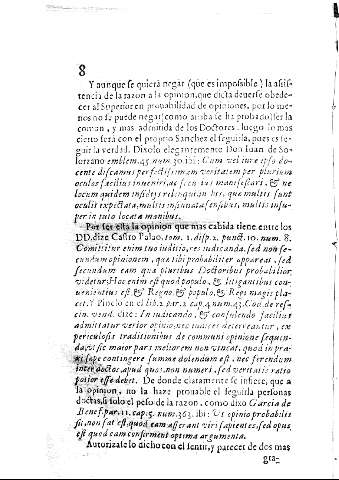 8
Y aunque se quiera negar (que es impossible) la assis-
tencia de la razon a la opinion, que dicta deuerse obede-
cer al Superior en probabilidad de opiniones, por lo me-
nos no se puede negar, como arriba se ha probado ser la
comun, y mas admitida de los Doctores, luego lo mas
cierto será con el proprio Sanchez el seguirla, pues es se-
guir la verdad. Dixolo elegantemente Don Iuan de So-
lorzano emblem. 45. num. 30. ibi: Cum vel iure ipso do-
cente discamus perfectissimam veritatem per plurium
oculos facilius inueniri, ac sensui manifestari, & ne
locum quidem insidijs relinqui in his, que multis sunt
oculis expectata, multis insinuata sensibus, multis insu-
per in tuto locata manibus.
Por ser esta la opinion que mas cabida tiene entre los
DD. dize Castro Palao, tom. 1. disp. 2. punct. 10. num. 8.
Comittitur enim tuo iuditio, res iudicanda, sed non se-
cundum opinionem, quæ tibi probabiliter appareas, sed
secundum eam quæ pluribus Doctoribus probabilior
videtur; Hoc enim est quod populo, & litigantibus con-
uenientius est, & Regno, & populo, & Regi magis pla-
cet. Y Pinelo en el lib. 2. par. 2. cap. 4. num. 43. Cod. de res-
cin. vend. dize: In iudicando, & consulendo facilius
admittatur verior opinio, nec iudices deterreantur, ex
periculosis traditionibus de communi opinione sequen-
da, vt sic maior pars meliorem non vincat, quod in pra-
xi sæpe contingere summe dolendum est, nec ferendum
inter doctor, apud quos, non numeri, sed veritatis ratio
potior esse debet. De donde claramente se infiere, que a
la opinion, no la haze probable el seguirla personas
doctas, si solo el peso de la razon, como dixo Garcia de
Benef. par. 11. cap. 5. num. 363. ibi: Vt opinio probabilis
sit, non sat est, quod eam asserant viri sapientes, sed opus
est quod eam confirment optima argumenta.
Autorizase lo dicho con el sentir, y parecer de dos mas
gra-